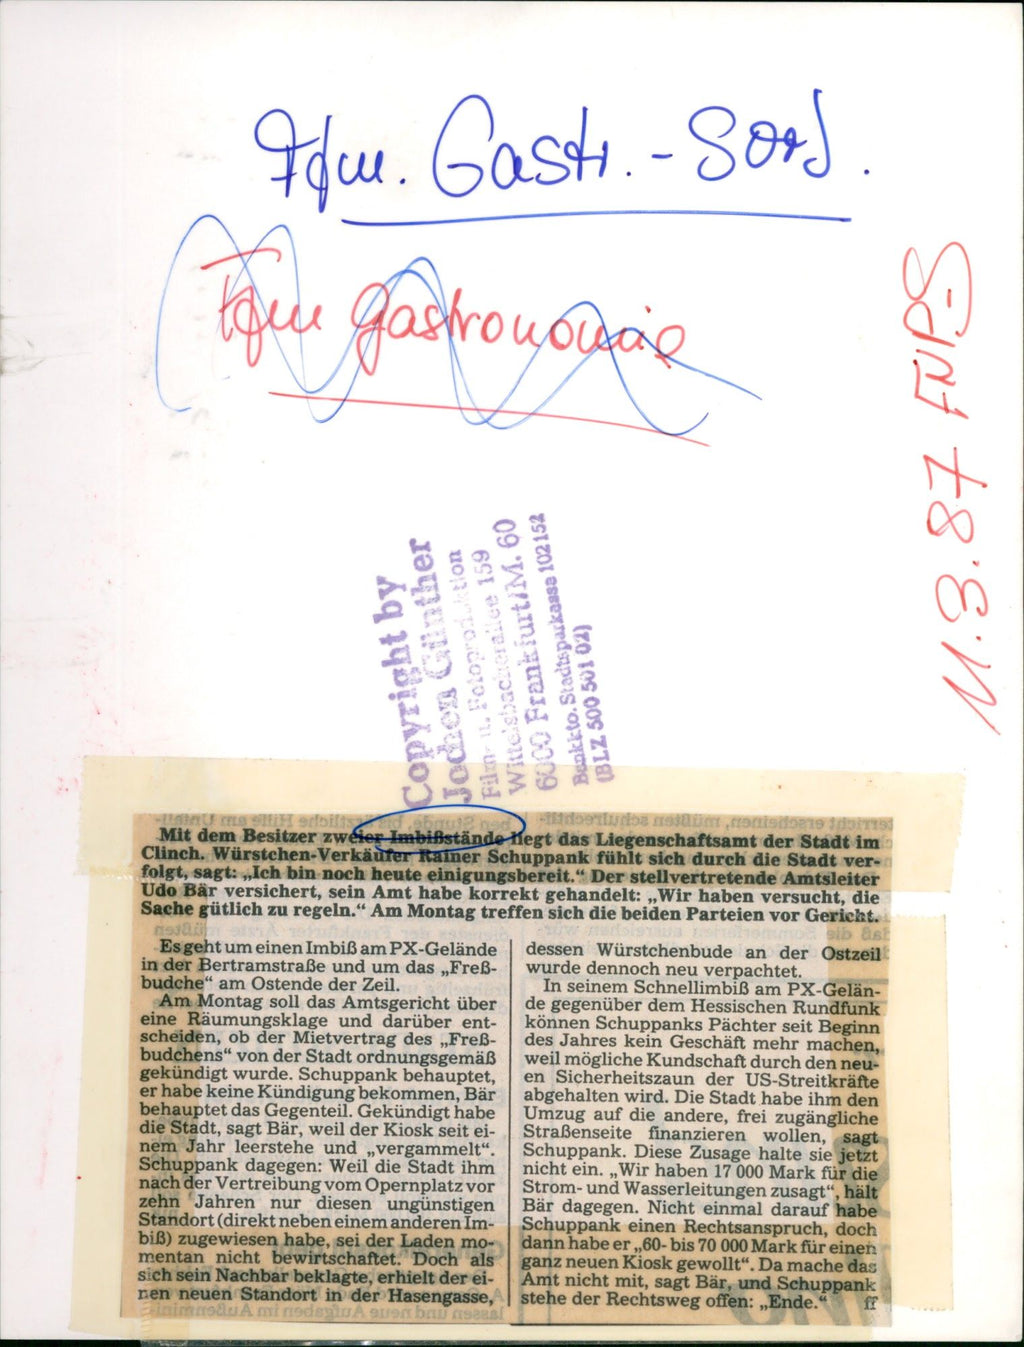 Ffm. Gastr. - Sons.
Ffm Gastronomie
11.3.87 FNP-S
Copyright by
Jochen Günther
Film- u. Fotoproduktion
Wittelsbacherallee 159
6000 Frankfurt/M. 60
Bankkto. Stadtsparkasse 102152
(BLZ 500 501 02)
Mit dem Besitzer zweier Imbißstände liegt das Liegenschaftsamt der Stadt im
Clinch. Würstchen-Verkäufer Rainer Schuppank fühlt sich durch die Stadt ver-
folgt, sagt: „Ich bin noch heute einigungsbereit.“ Der stellvertretende Amtsleiter
Udo Bär versichert, sein Amt habe korrekt gehandelt: „Wir haben versucht, die
Sache gütlich zu regeln.“ Am Montag treffen sich die beiden Parteien vor Gericht.
Es geht um einen Imbiß am PX-Gelände
in der Bertramstraße und um das „Freß-
budche“ am Ostende der Zeil.
Am Montag soll das Amtsgericht über
eine Räumungsklage und darüber ent-
scheiden, ob der Mietvertrag des „Freß-
budchens“ von der Stadt ordnungsgemäß
gekündigt wurde. Schuppank behauptet,
er habe keine Kündigung bekommen, Bär
behauptet das Gegenteil. Gekündigt habe
die Stadt, sagt Bär, weil der Kiosk seit ei-
nem Jahr leerstehe und „vergammelt“.
Schuppank dagegen: Weil die Stadt ihm
nach der Vertreibung vom Opernplatz vor
zehn Jahren nur diesen ungünstigen
Standort (direkt neben einem anderen Im-
biß) zugewiesen habe, sei der Laden mo-
mentan nicht bewirtschaftet. Doch als
sich sein Nachbar beklagte, erhielt der ei-
nen neuen Standort in der Hasengasse,
dessen Würstchenbude an der Ostzeil
wurde dennoch neu verpachtet.
In seinem Schnellimbiß am PX-Gelän-
de gegenüber dem Hessischen Rundfunk
können Schuppanks Pächter seit Beginn
des Jahres kein Geschäft mehr machen,
weil mögliche Kundschaft durch den neu-
en Sicherheitszaun der US-Streitkräfte
abgehalten wird. Die Stadt habe ihm den
Umzug auf die andere, frei zugängliche
Straßenseite finanzieren wollen, sagt
Schuppank. Diese Zusage halte sie jetzt
nicht ein. „Wir haben 17 000 Mark für die
Strom- und Wasserleitungen zusagt“, hält
Bär dagegen. Nicht einmal darauf habe
Schuppank einen Rechtsanspruch, doch
dann habe er „60- bis 70 000 Mark für einen
ganz neuen Kiosk gewollt“. Da mache das
Amt nicht mit, sagt Bär, und Schuppank
stehe der Rechtsweg offen: „Ende.“ ff